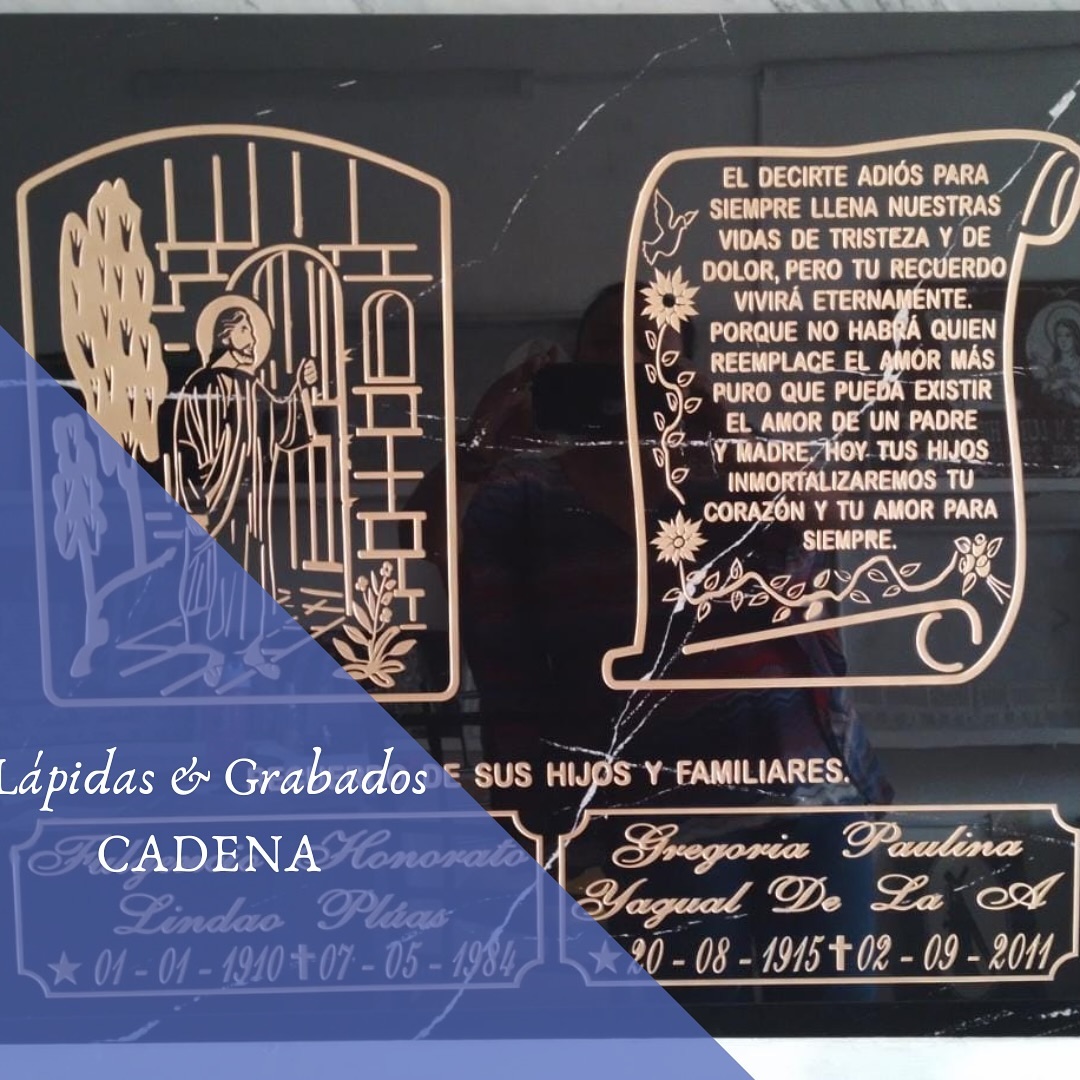 EL DECIRTE ADIÓS PARA
SIEMPRE LLENA NUESTRAS
VIDAS DE TRISTEZA Y DE
DOLOR, PERO TU RECUERDO
VIVIRÁ ETERNAMENTE.
PORQUE NO HABRÁ QUIEN
REEMPLACE EL AMOR MÁS
PURO QUE PUEDA EXISTIR
EL AMOR DE UN PADRE
Y MADRE, HOY TUS HIJOS
INMORTALIZAREMOS TU
CORAZÓN Y TU AMOR PARA
SIEMPRE.
DE SUS HIJOS Y FAMILIARES.
Lápidas & Grabados
CADENA
Honorato
Lindao Plúas
★ 01 - 01 - 1910 ✝ 07 - 05 - 1984
Gregoria Paulina
Yagual De La A
★ 20 - 08 - 1915 ✝ 02 - 09 - 2011